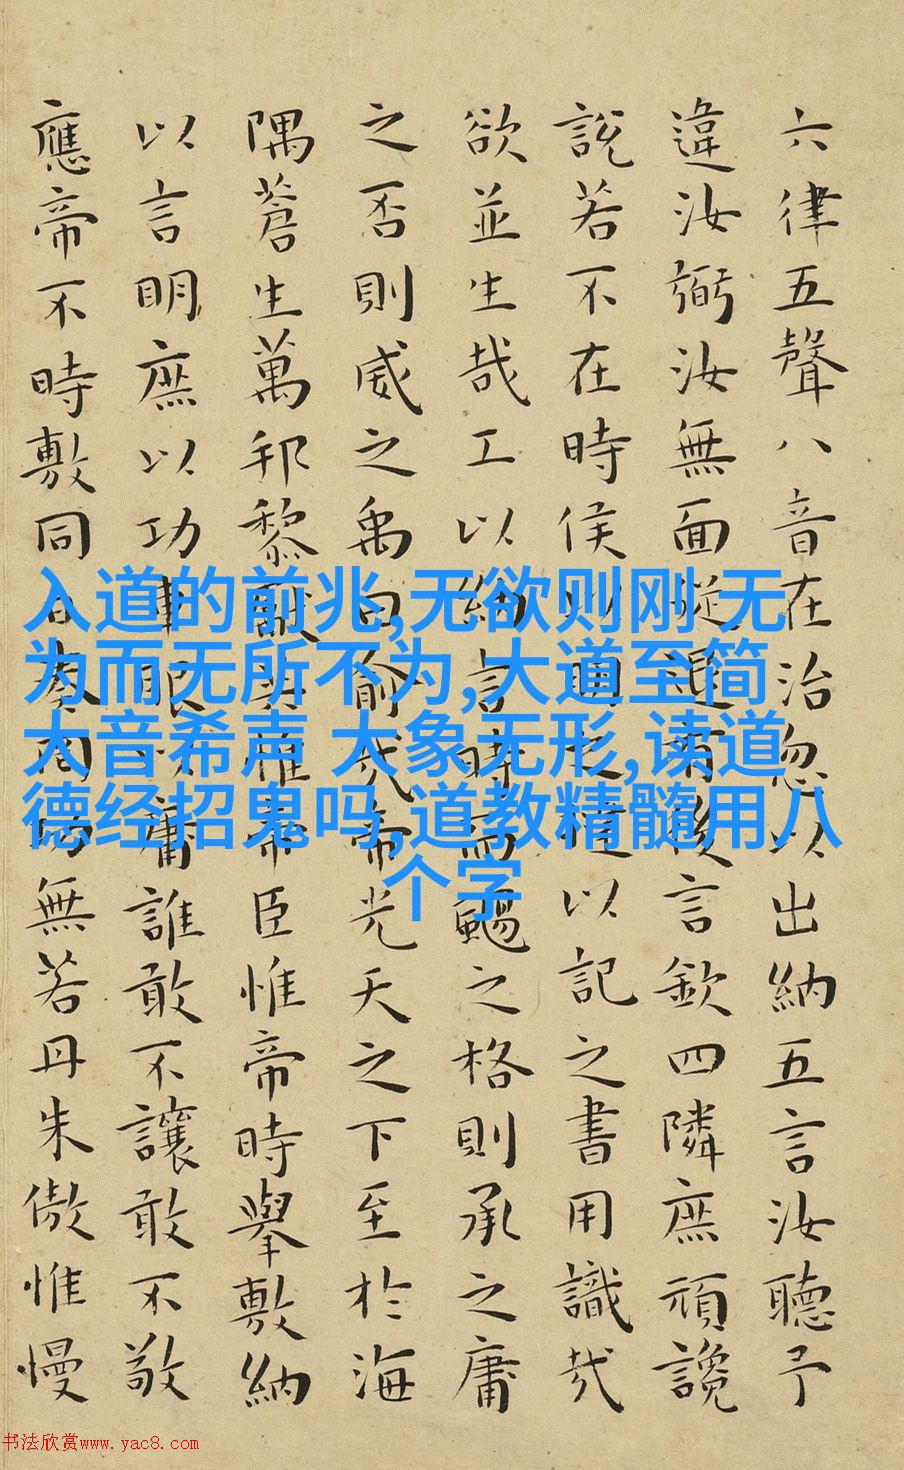 六律五聲八音在治忽以出納五言汝聽予
違汝弼汝無面從退有後言欽四隣庶頑讒
說若不在時侯以明之撻以記之書用識哉
欲並生哉工以納言時而颺之格則承之庸
之否則威之禹曰俞哉帝光天之下至於海
隅蒼生萬邦黎獻共惟帝臣惟帝時舉敷納
以言明庶以功車服以庸誰敢不讓敢不敬
應帝不時敷同日奏罔功無若丹朱傲惟慢
入道的前兆,无欲则刚 无
为而无所不为,大道至简
大音希声 大象无形,读道
德经招鬼吗,道教精髓用八
个字
书法欣赏www.yac8.com